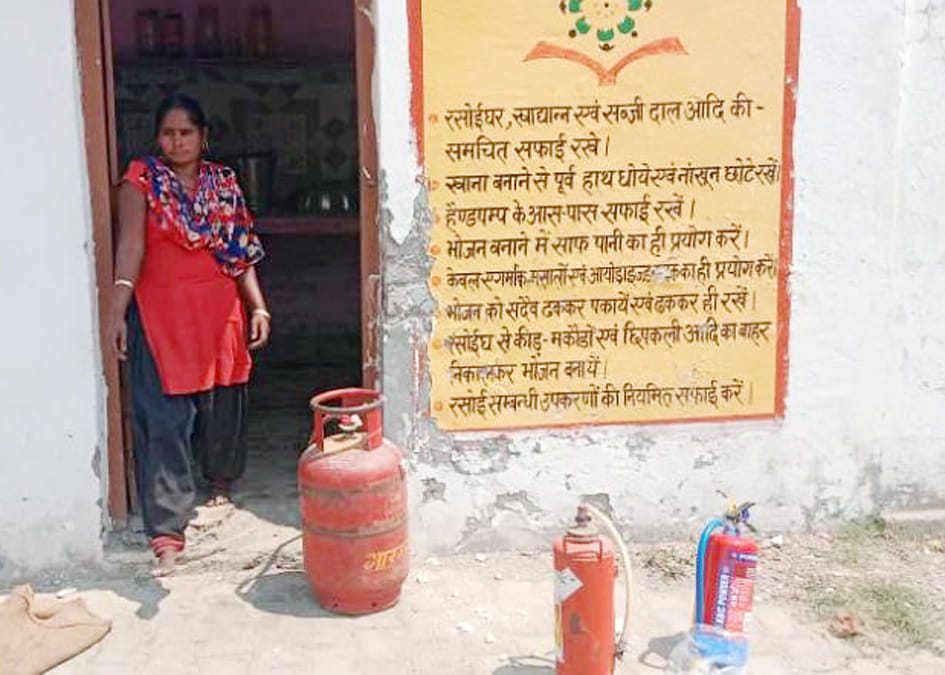 रसोईघर, खाद्यान्न एवं सब्जी दाल आदि की -
समचित सफाई रखे।
खाना बनाने से पूर्व हाथ धोये एवं नाखून छोटे रखें।
हैण्डपम्प के आस-पास सफाई रखें।
भोजन बनाने में साफ पानी का ही प्रयोग करें।
केवल एगमार्क मसालों एवं आयोडाइज्ड का ही प्रयोग करें।
भोजन को सदैव ढककर पकायें एवं ढककर ही रखें।
रसोईघ से कीड़े-मकोडों एवं छिपकली आदि का बाहर
निकालकर भोजन बनायें।
रसोई सम्बन्धी उपकरणों की नियमित सफाई करें।
ABC POWDER